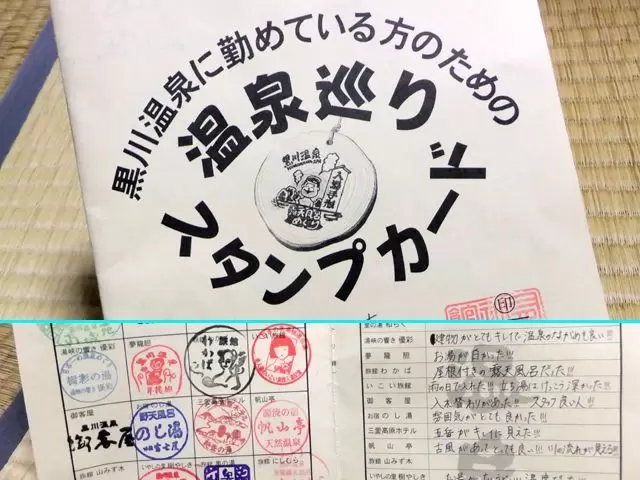 黒川温泉に勤めている方のための
温泉巡り
スタンプカード
黒川温泉
入湯手形
露天風呂
めぐり
印
里の湯 和らく
湯峡の響き 優彩
夢龍胆
旅館 わかば
いこい旅館
御客屋
お宿 のし湯
三愛高原ホテル
帆山亭
旅館 山みず木
いやしの里 樹やしき
建物がとてもキレイで温泉のながめも良い!!!
お湯が白かった!!!
屋根付きの露天風呂だった!!!
雨の日で入れた!! 立ち湯はけっこう深かった!!!
入れ替わりがあった!! スタッフ良い人!!!
雰囲気がとても良かった!!!
五岳がキレイに見えた!!!
古風があってとても良い!!! 川の流れが見える!!!
湯峡の響き 優彩
夢龍胆
旅館 わかば
いこい旅館
御客屋
お宿 のし湯
三愛高原ホテル
帆山亭
黒川温泉
御客屋
露天風呂
のし湯
湯洩の宿
帆山亭
天然温泉
旅館 山みず木
いやしの里 樹やしき
旅館 にしむら